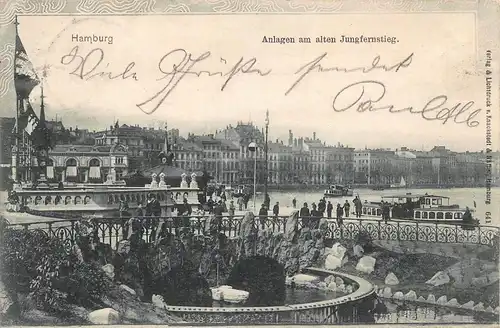 Hamburg
Anlagen am alten Jungfernstieg.
Viele Grüße sendet
Paul
Verlag & Lichtdruck v. Knackstedt & Näther, Hamburg